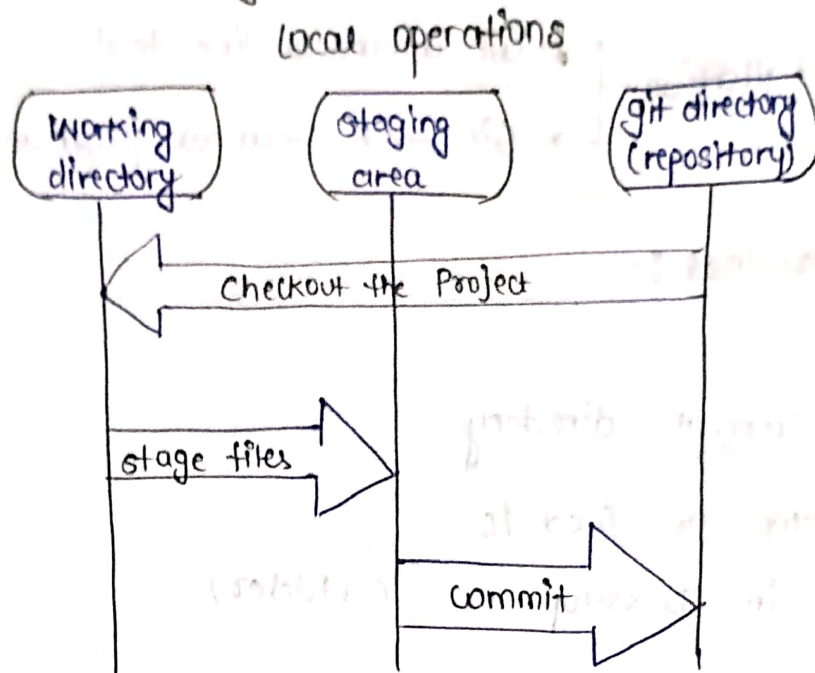 Local operations
Working
directory
staging
area
git directory
(repository)
Checkout the Project
stage files
commit
directory